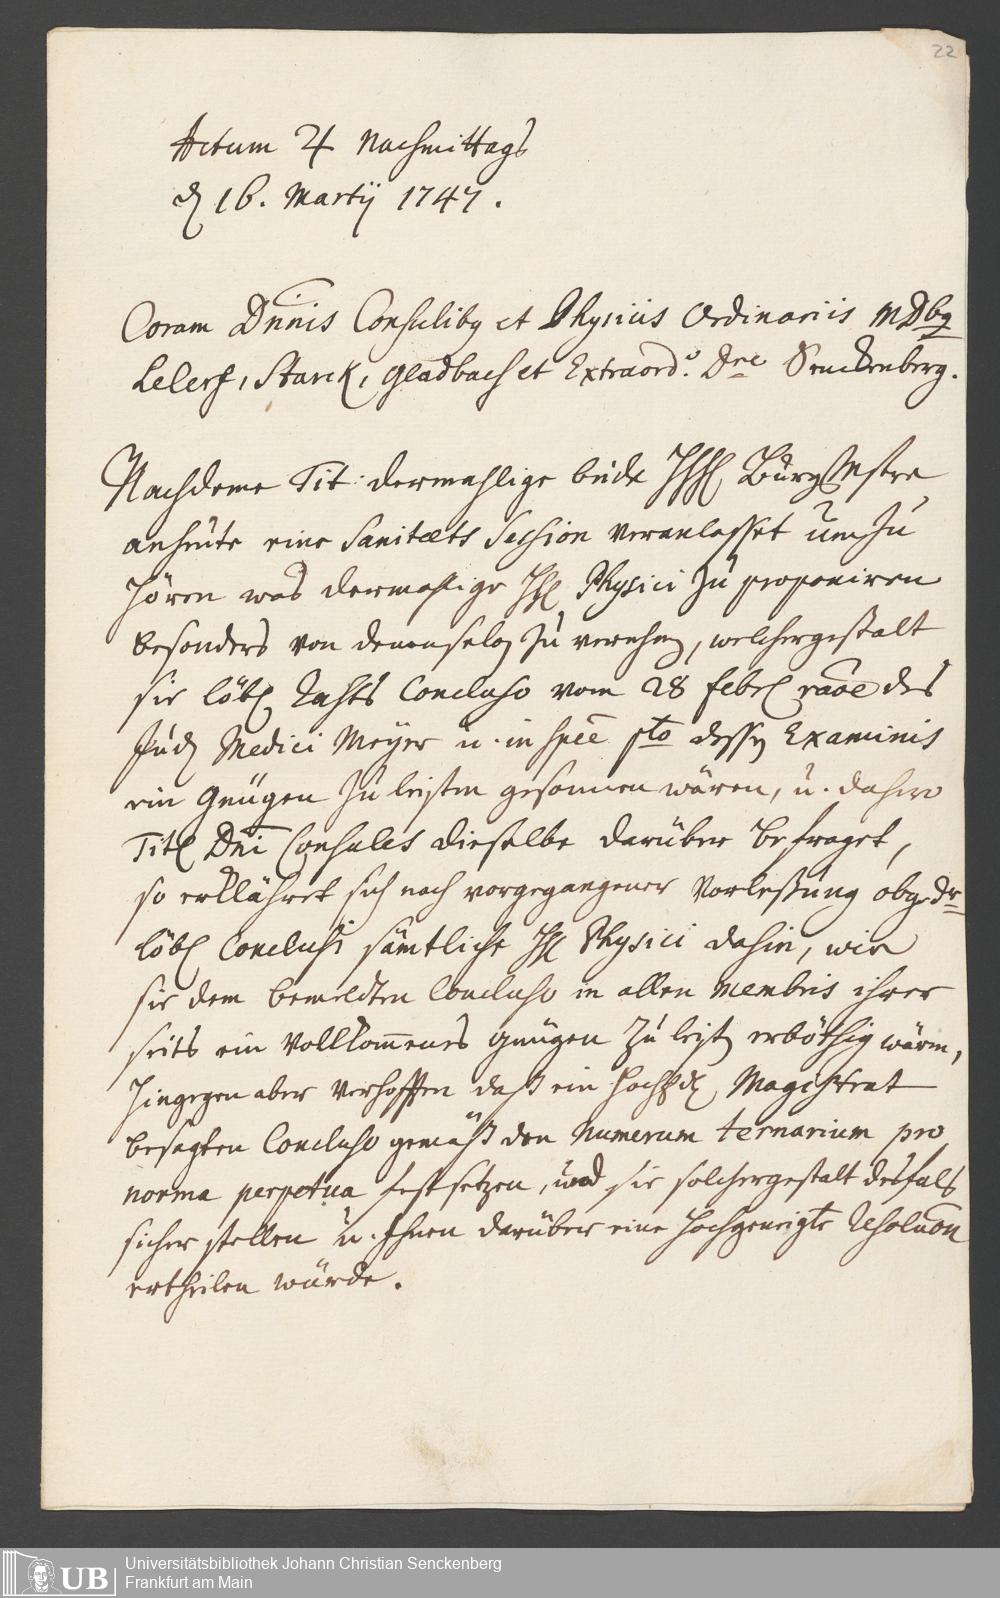 22
Actum ♃ Nachmittags
d 16. Martij 1747.
Coram Dnnis Consulibq et Physicis Ordinariis MDbq
Lelerß, Starck, Gladbach et Extraord.º Dre Senckenberg.
Nachdeme Tit: dermahlige beide HHH. Burg Mstre
anheute eine Sanitæts Session veranlasset um zu
hören was dermahlige HH. Physici zu proponiren
besonders von denenselb zu vernehm, welchergestalt
sie löbl Rahts Concluso vom 28 febr raoe des
Jud Medici Meyer u. in spec pto dessen Examinis
ein Gnügen zu leisten gesonnen wären, u. dahero
Titl Dni Consules dieselbe darüber befraget,
so erklähret sich nach vorgegangener Vorleßung obgedr
löbl Conclusi sämtliche HH Physici dahin, wie
sie dem bemeldten Concluso in allen membris ihrer
seits ein Vollkommenes gnügen zu leist erböthig wären,
hingegen aber verhofften daß ein Hochedl Magistrat
besagten Concluso gemäß den Numerum ternarium pro
norma perpetua festsetzen, und sie solchergestalt desfals
sicher stellen u. Ihnen darüber eine Hochgeneigte Resoluon
ertheilen würde.
UB
Universitätsbibliothek Johann Christian Senckenberg
Frankfurt am Main